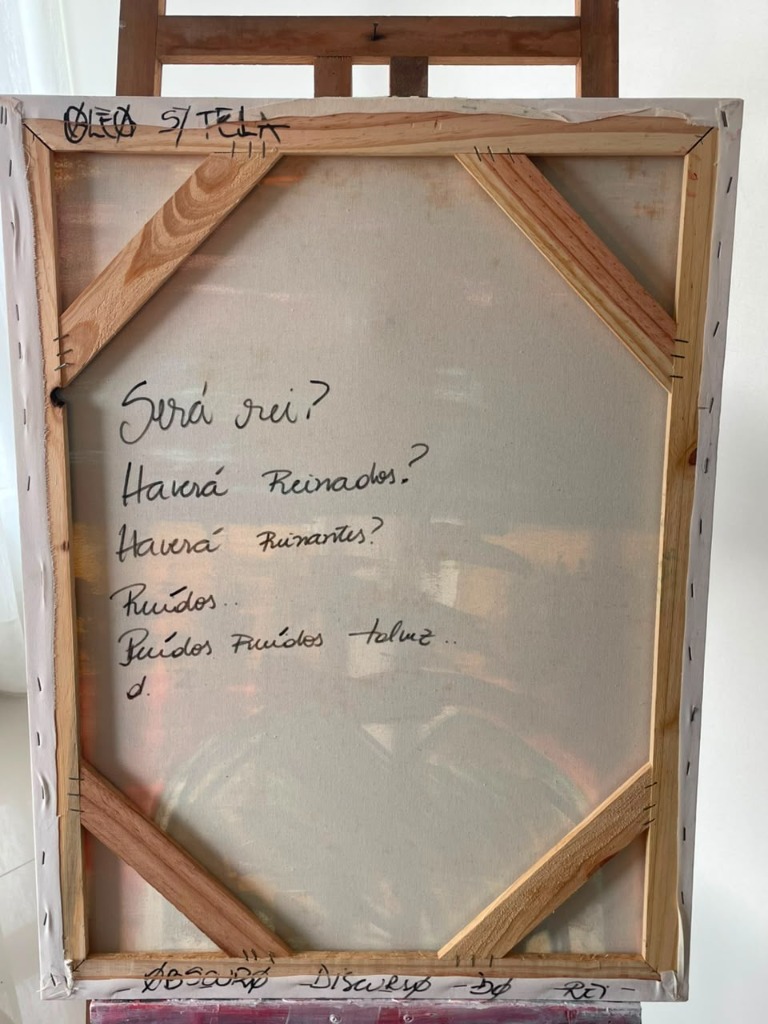 ØLEØ S/ TELA
Será rei?
Haverá Reinados?
Haverá Reinantes?
Ruídos..
Ruídos Ruídos talvez..
d.
ØBSCURØ DISCURSØ DØ REI